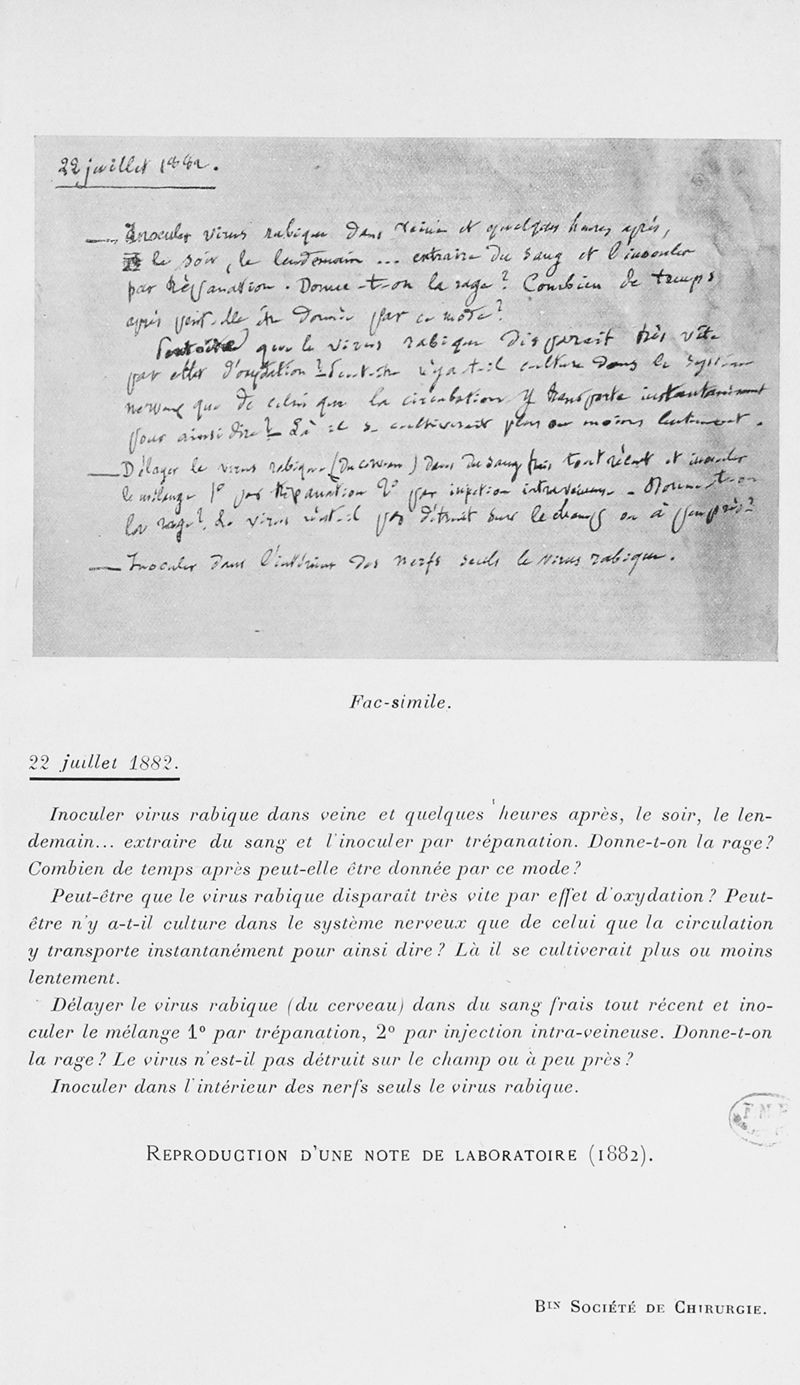 22 juillet 1882.
— Inoculer virus rabique dans veine et quelques heures après,
le soir, le lendemain ... extraire du sang et l'inoculer
par trépanation. Donne-t-on la rage? Combien de temps
après peut-elle être donnée par ce mode?
Peut-être que le virus rabique disparait très vite
par effet d'oxydation? Peut-être n'y a-t-il culture dans le système
nerveux que de celui que la circulation y transporte instantanément
pour ainsi dire? Là il se cultiverait plus ou moins lentement.
— Délayer le virus rabique (du cerveau) dans du sang frais tout récent et inoculer
le mélange 1° par trépanation 2° par injection intraveineuse. Donne-t-on
la rage? Le virus n'est-il pas détruit sur le champ ou à peu près?
— Inoculer dans l'intérieur des nerfs seuls le virus rabique.
Fac-simile.
22 juillet 1882.
Inoculer virus rabique dans veine et quelques heures après, le soir, le len-
demain... extraire du sang et l'inoculer par trépanation. Donne-t-on la rage?
Combien de temps après peut-elle être donnée par ce mode?
Peut-être que le virus rabique disparaît très vite par effet d'oxydation? Peut-
être n'y a-t-il culture dans le système nerveux que de celui que la circulation
y transporte instantanément pour ainsi dire? Là il se cultiverait plus ou moins
lentement.
Délayer le virus rabique (du cerveau) dans du sang frais tout récent et ino-
culer le mélange 1° par trépanation, 2° par injection intra-veineuse. Donne-t-on
la rage? Le virus n'est-il pas détruit sur le champ ou à peu près?
Inoculer dans l'intérieur des nerfs seuls le virus rabique.
REPRODUCTION D'UNE NOTE DE LABORATOIRE (1882).
BIN SOCIÉTÉ DE CHIRURGIE.